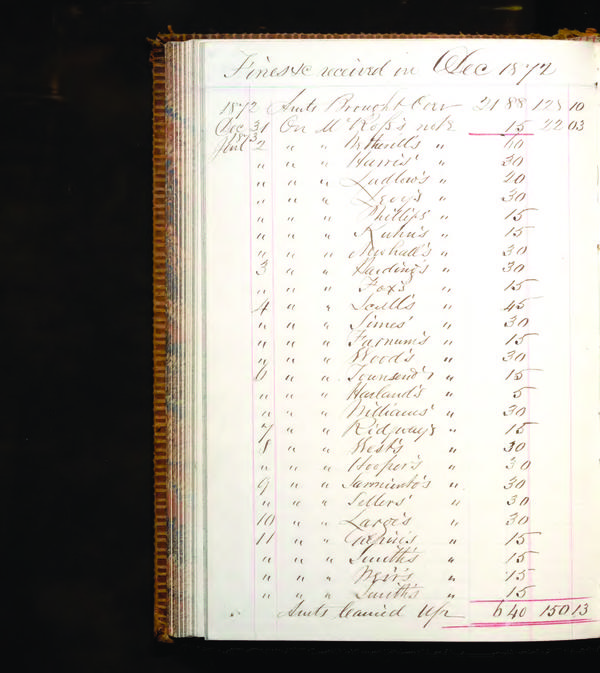 Fines &c received in Dec 1872
1872 Amts Brought Over 21 88 128 10
Dec 31 On Mr Ross's note 15 22 03
1873
Jan 2 " " Wetherell's " 60
" " " Harris' " 30
" " " Ludlow's " 20
" " " Levy's " 30
" " " Phillips " 15
" " " Kuhn's " 15
" " " Marshall's " 30
3 " " Harding's " 30
" " " Fox's " 15
4 " " Scull's " 45
" " " Simes' " 30
" " " Farnum's " 15
" " " Wood's " 30
6 " " Townsend's " 15
" " " Harland's " 5
" " " Williams' " 30
7 " " Ridway's " 15
8 " " West's " 30
" " " Hooper's " 30
9 " " Sarmiento's " 30
" " " Sellers' " 30
10 " " Large's " 30
11 " " " 15
" " " Smith's " 15
" " " Weir's " 15
" " " Smith's " 15
Amts Carried Up 6 40 150 13